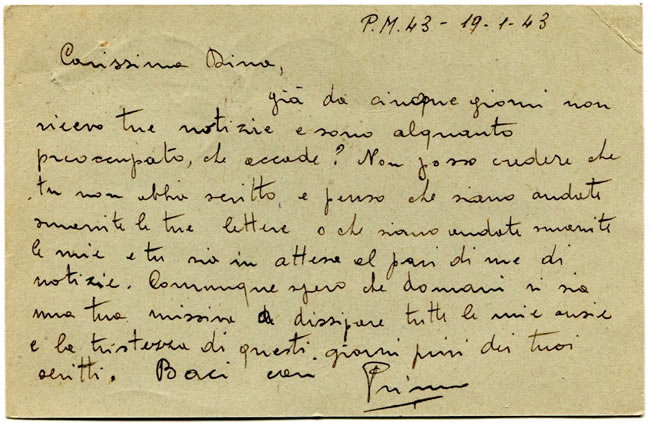 P.M. 43 - 19-1-43
Carissima Dina,
già da cinque giorni non
ricevo tue notizie e sono alquanto
preoccupato, che accade? Non posso credere che
tu non abbia scritto, e penso che siano andate
smarrite le tue lettere o che siano andate smarrite
le mie e tu sia in attesa al pari di me di
notizie. Comunque spero che domani vi sia
una tua missiva a dissipare tutte le mie ansie
e la tristezza di questi giorni privi dei tuoi
scritti. Baci cari